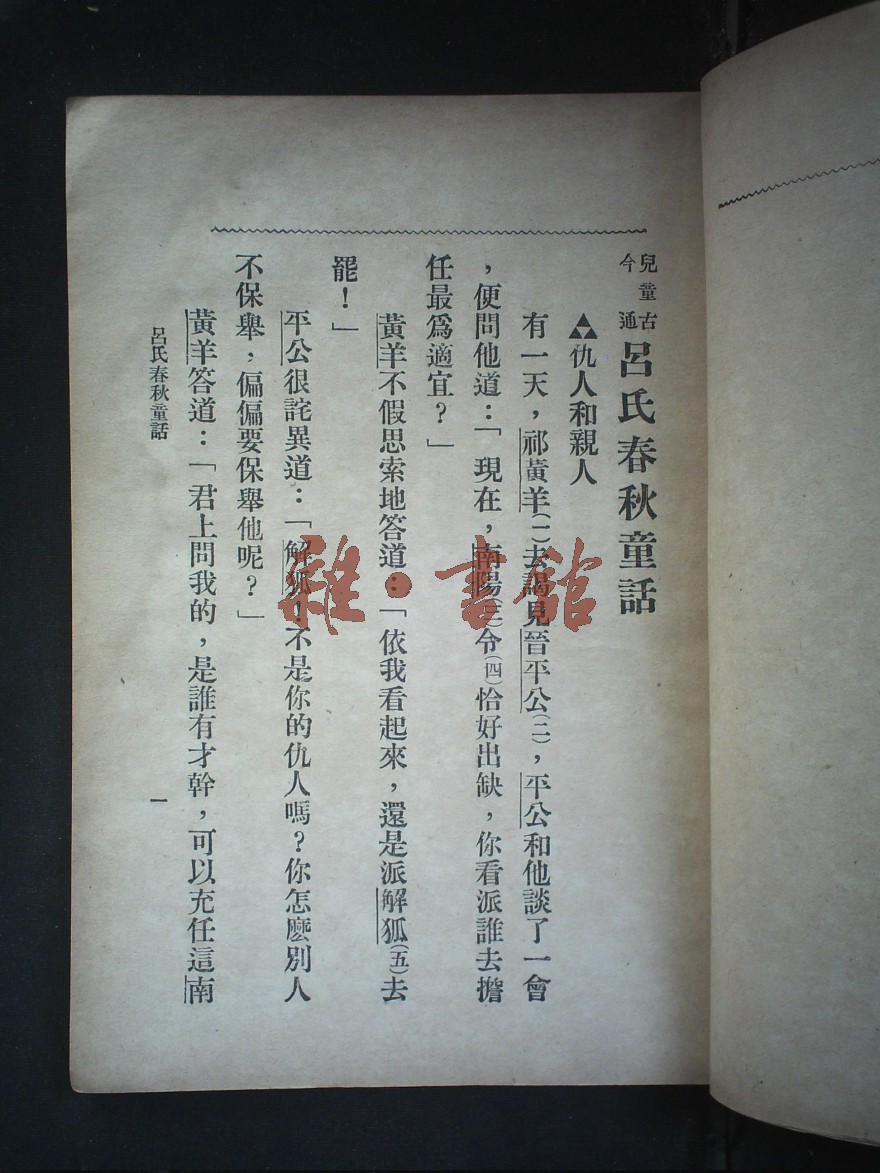 兒童古今通 呂氏春秋童話
仇人和親人
有一天，祁黃羊(一)去謁見晉平公(二)，平公和他談了一會
，便問他道：「現在，南陽(三)令(四)恰好出缺，你看派誰去擔
任最爲適宜？」
黃羊不假思索地答道：「依我看起來，還是派解狐(五)去
罷！」
平公很詫異道：「解狐！不是你的仇人嗎？你怎麽別人
不保舉，偏偏要保舉他呢？」
黃羊答道：「君上問我的，是誰有才幹，可以充任這南
呂氏春秋童話
一
雜·書館